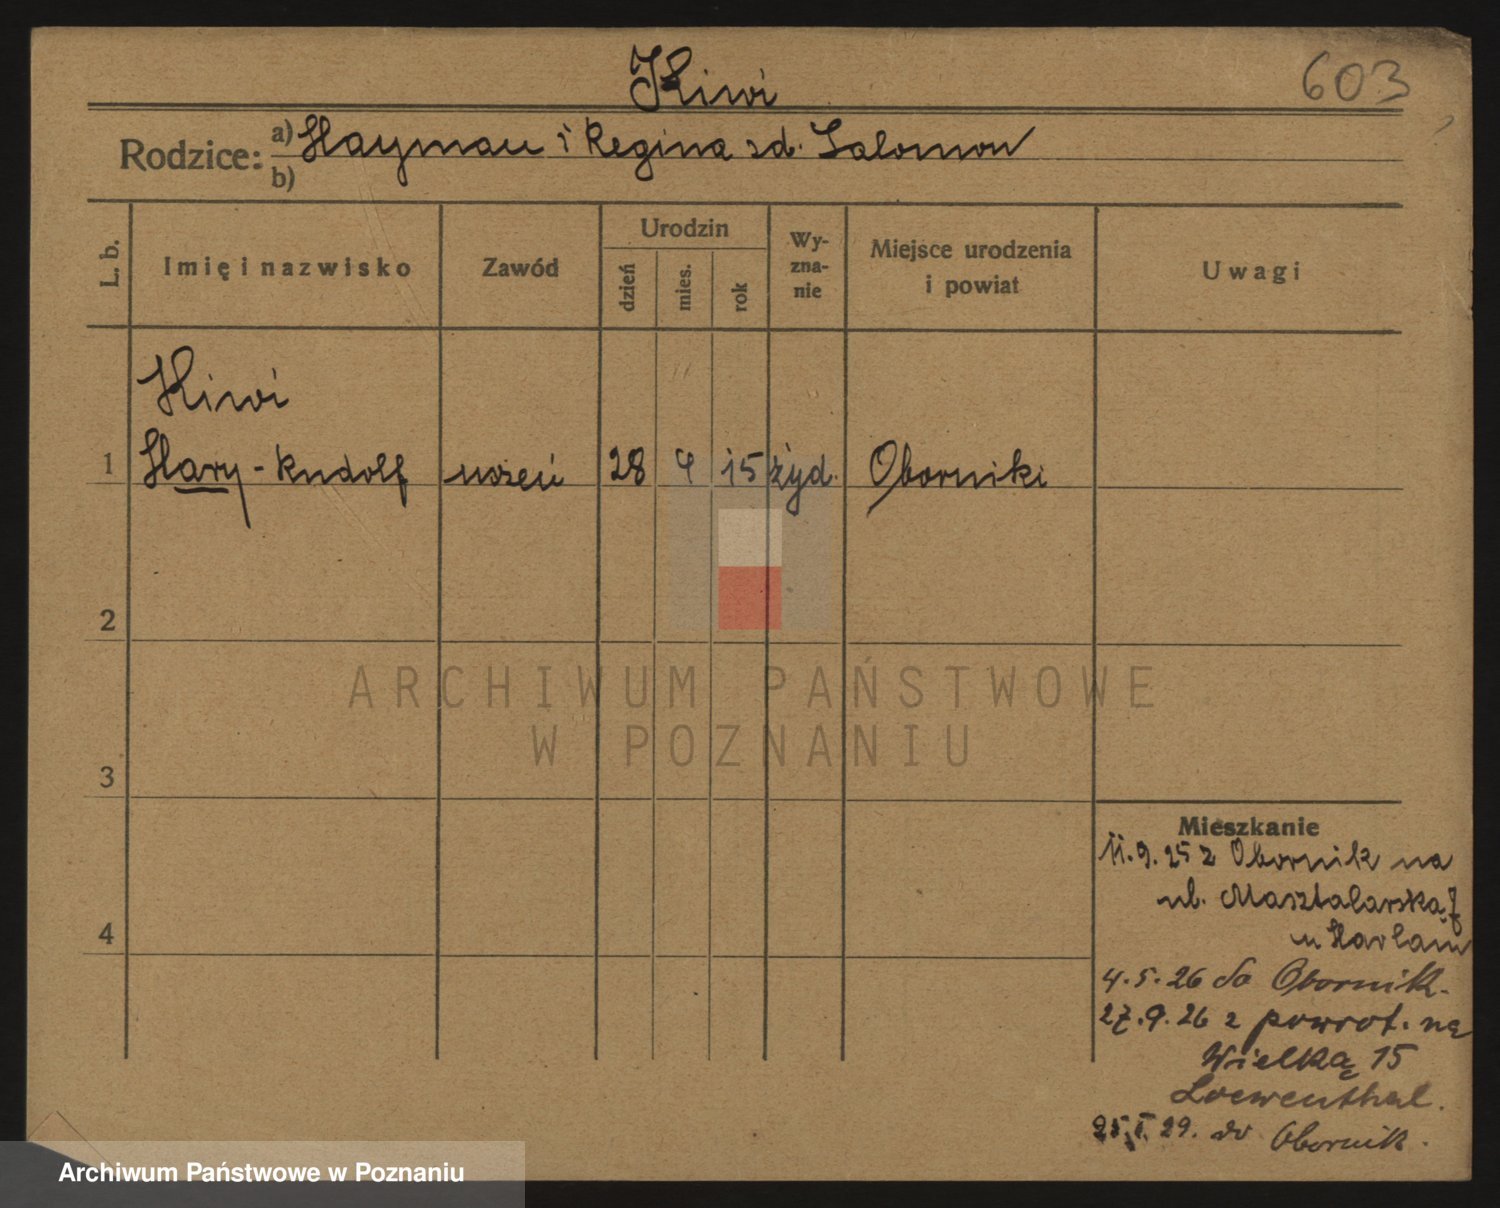 Kiwi
603
Rodzice:
a) Hayman i Regina zd. Salomon
b)
L. b.
Imię i nazwisko
Zawód
Urodzin
dzień
mies.
rok
Wy-
zna-
nie
Miejsce urodzenia
i powiat
Uwagi
Kiwi
1 Hary - Rudolf uczeń 28 4 15 żyd. Oborniki
2
ARCHIWUM PAŃSTWOWE
W POZNANIU
3
4
Mieszkanie
11.9.25 z Obornik na
ul. Masztalarską 7
u Harlam
4.5.26 do Obornik.
27.9.26 z powrot. na
Wielką 15
Loewenthal.
I. 29. do Obornik.
Archiwum Państwowe w Poznaniu